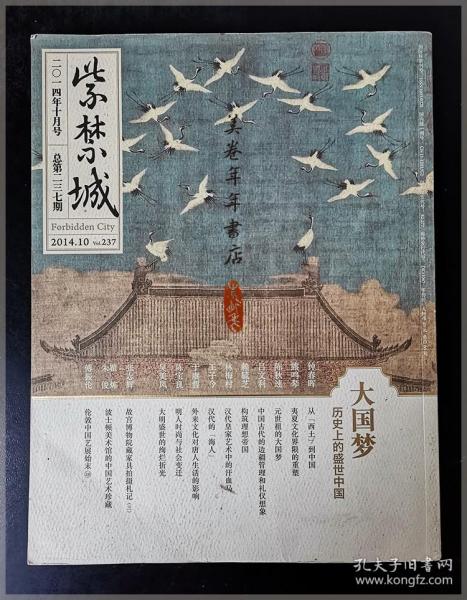 紫禁城
二〇一四年十月号
总第二三七期
Forbidden City
2014.10 Vol.237
美卷年年書店
大国梦
历史上的盛世中国
钟春晖
从「西土」到中国
夷夏文化界限的重塑
陈秋速
元世祖的大国梦
中国古代的边疆管理和礼仪想象
构筑理想帝国
林梅村
汉代皇家艺术中的汗血马
王子今
汉代的「海人」
外来文化对唐人生活的影响
陈宝良
明人时尚与社会变迁
吴美凤
大明盛世的绚烂折光
故宫博物院藏家具拍摄札记
朱俊
波士顿美术馆的中国艺术珍藏
傅振伦
伦敦中国艺展始末
孔夫子旧书网
www.kongfz.com